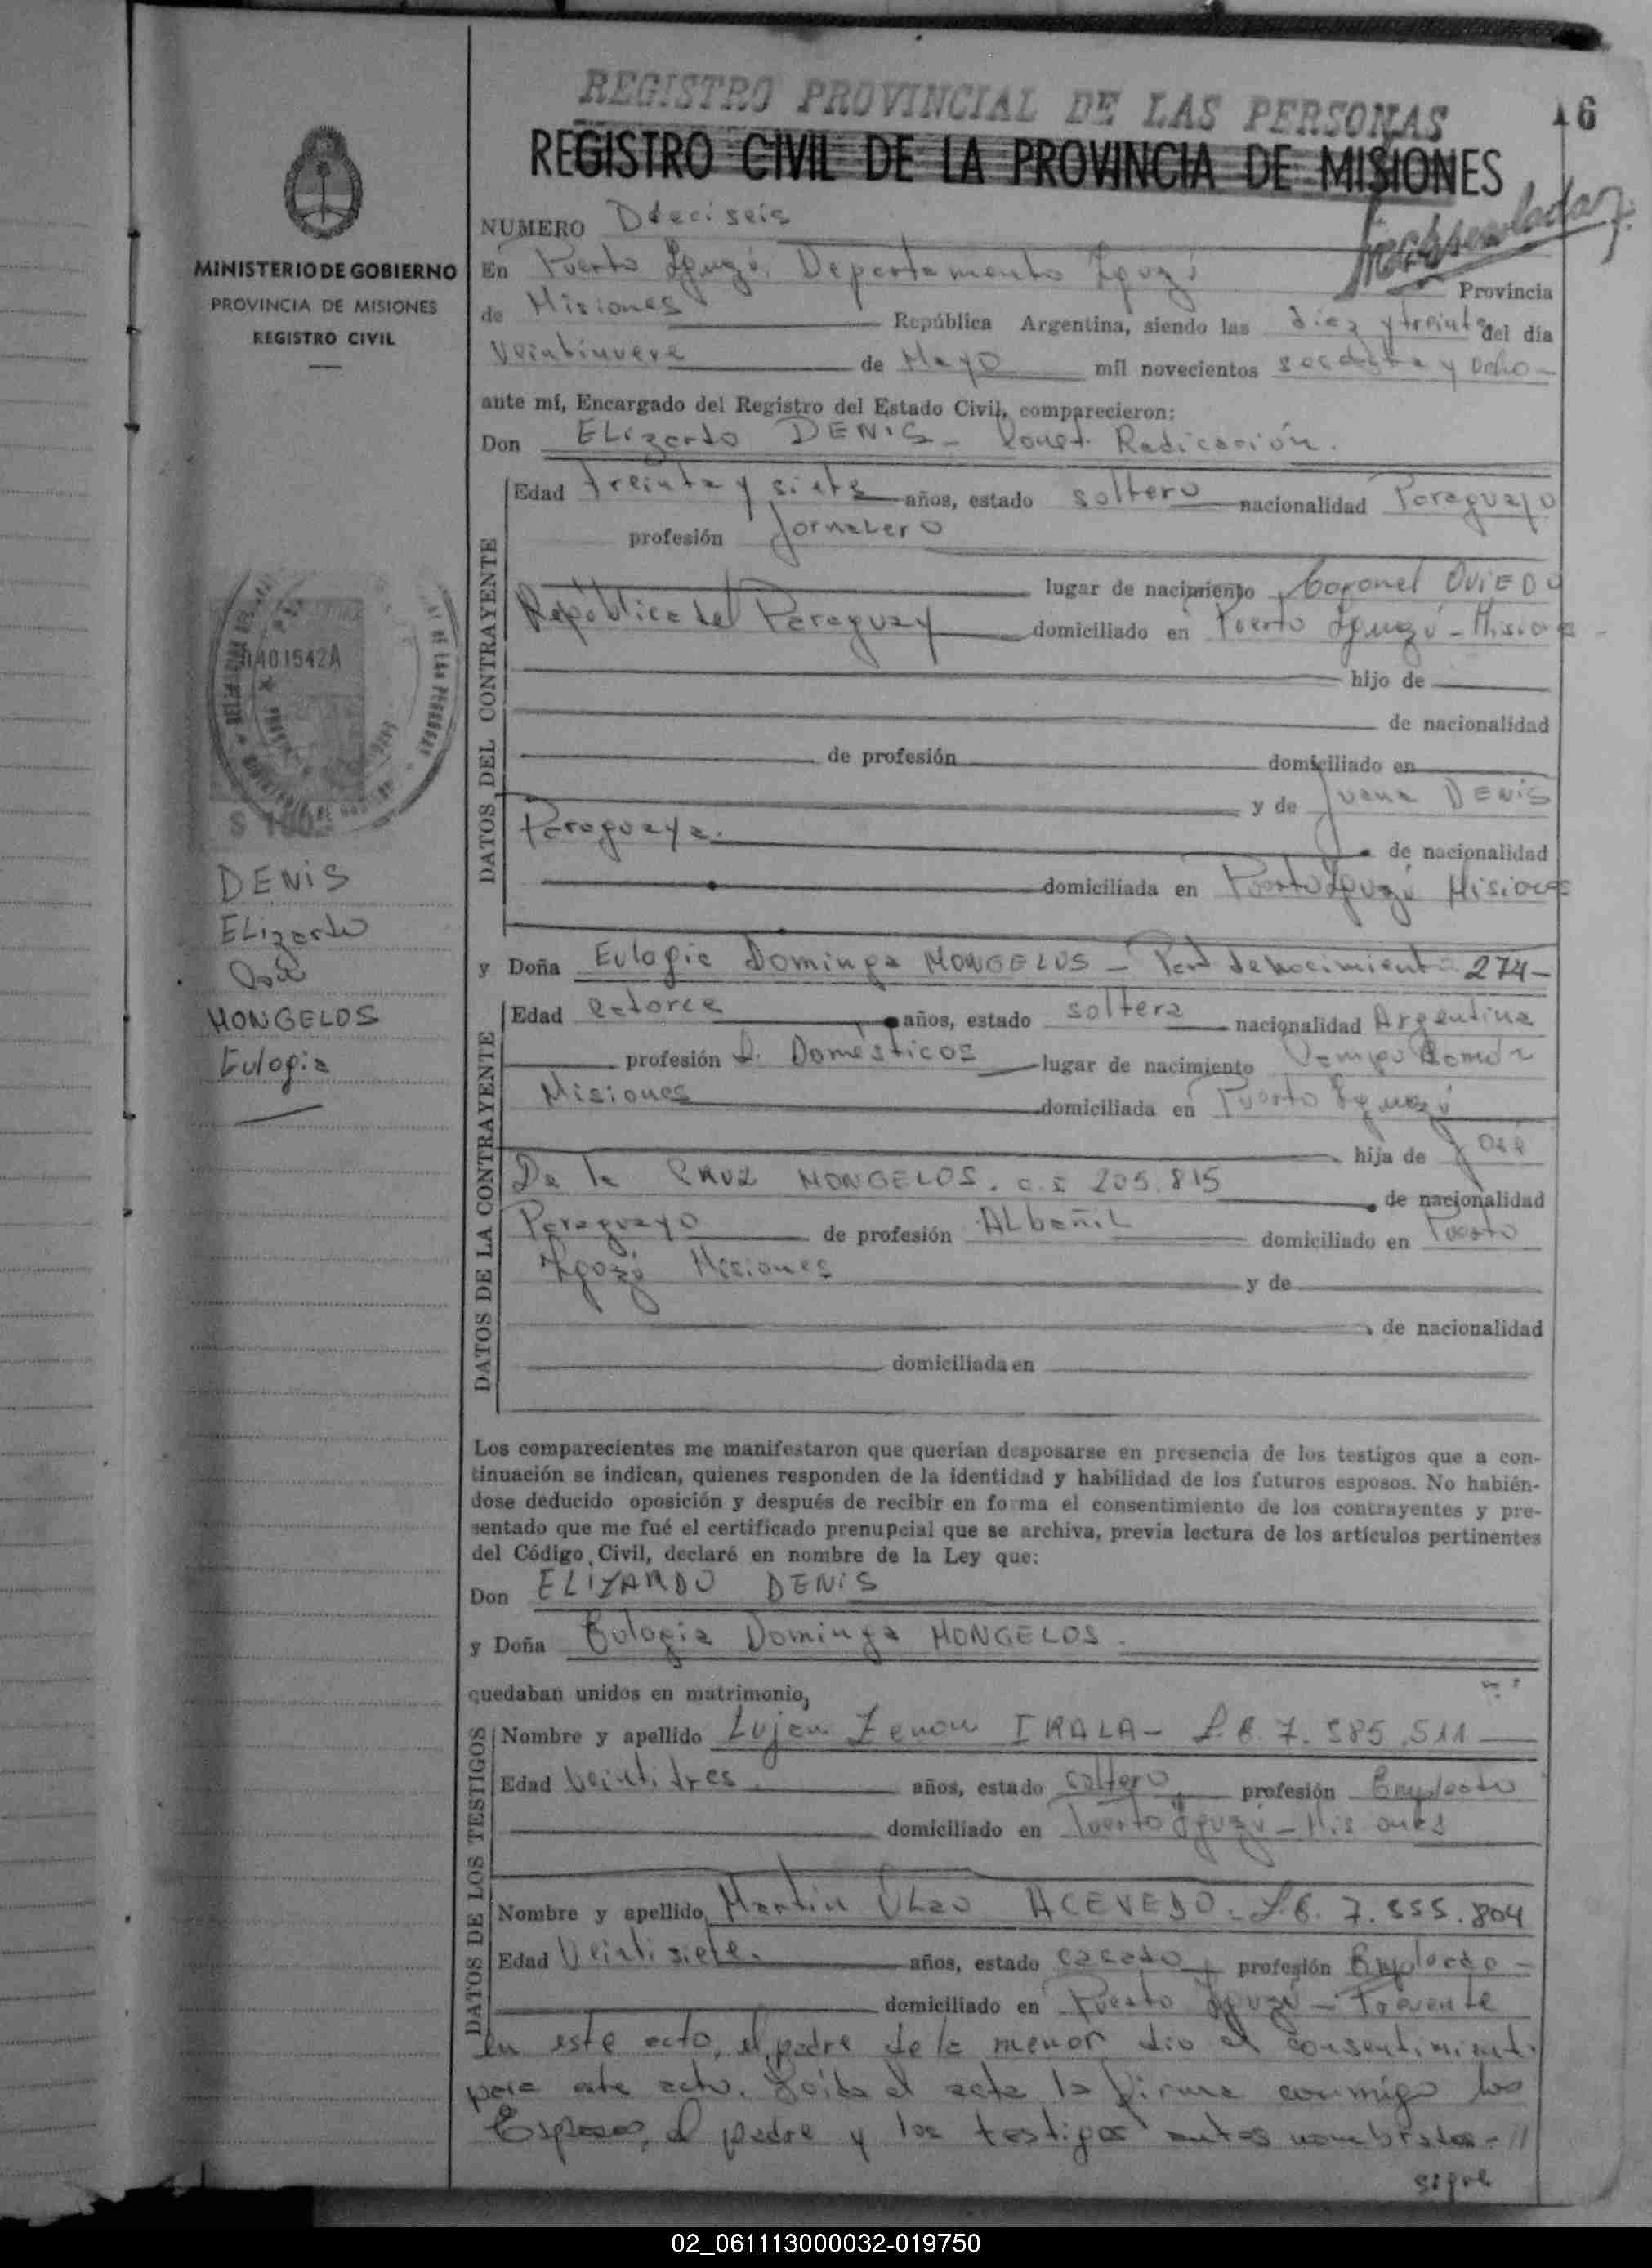 REGISTRO PROVINCIAL DE LAS PERSONAS
16
REGISTRO CIVIL DE LA PROVINCIA DE MISIONES
MINISTERIO DE GOBIERNO
PROVINCIA DE MISIONES
REGISTRO CIVIL
A401542A
DENIS
Elizardo
MONGELOS
Eulogia
NUMERO Dieciseis
En Puerto Iguazú, Departamento Iguazú Provincia
de Misiones República Argentina, siendo las diez y treinta del día
Veintinueve de Mayo mil novecientos sesenta y ocho
ante mí, Encargado del Registro del Estado Civil, comparecieron:
Don Elizardo DENIS - Radicación.
Edad treinta y siete años, estado soltero nacionalidad Paraguayo
profesión Jornalero
lugar de nacimiento Coronel OVIEDO
República del Paraguay domiciliado en Puerto Iguazú - Misiones
hijo de
de nacionalidad
de profesión domiciliado en
y de Juana DENIS
Paraguaya. de nacionalidad
domiciliada en Puerto Iguazú Misiones
DATOS DEL CONTRAYENTE
y Doña Eulogia Dominga MONGELOS - Part de nacimiento 274-
Edad catorce años, estado soltera nacionalidad Argentina
profesión Q. Domésticos lugar de nacimiento Campo
Misiones domiciliada en Puerto Iguazú
hija de José
De la CRUZ MONGELOS. c.i 205.815 de nacionalidad
Paraguayo de profesión Albañil domiciliado en Puerto
Iguazú Misiones y de
de nacionalidad
domiciliada en
DATOS DE LA CONTRAYENTE
Los comparecientes me manifestaron que querían desposarse en presencia de los testigos que a con-
tinuación se indican, quienes responden de la identidad y habilidad de los futuros esposos. No habién-
dose deducido oposición y después de recibir en forma el consentimiento de los contrayentes y pre-
sentado que me fué el certificado prenupcial que se archiva, previa lectura de los artículos pertinentes
del Código Civil, declaré en nombre de la Ley que:
Don ELIZARDO DENIS
y Doña Eulogia Dominga MONGELOS.
quedaban unidos en matrimonio,
Nombre y apellido Lujan Zenon IRALA - L.E. 7.585.511
Edad Veintitres años, estado soltero profesión Empleado
domiciliado en Puerto Iguazú - Misiones
Nombre y apellido Martin ACEVEDO - L.E. 7.555.804
Edad Veintisiete. años, estado casado profesión Empleado -
domiciliado en Puerto Iguazú - Presente
DATOS DE LOS TESTIGOS
en este acto, el padre de la menor dio el consentimiento
para este acto. Leida el acta la firman conmigo los
Esposos, el padre y los testigos antes nombrados - //
sigue
02_061113000032-019750